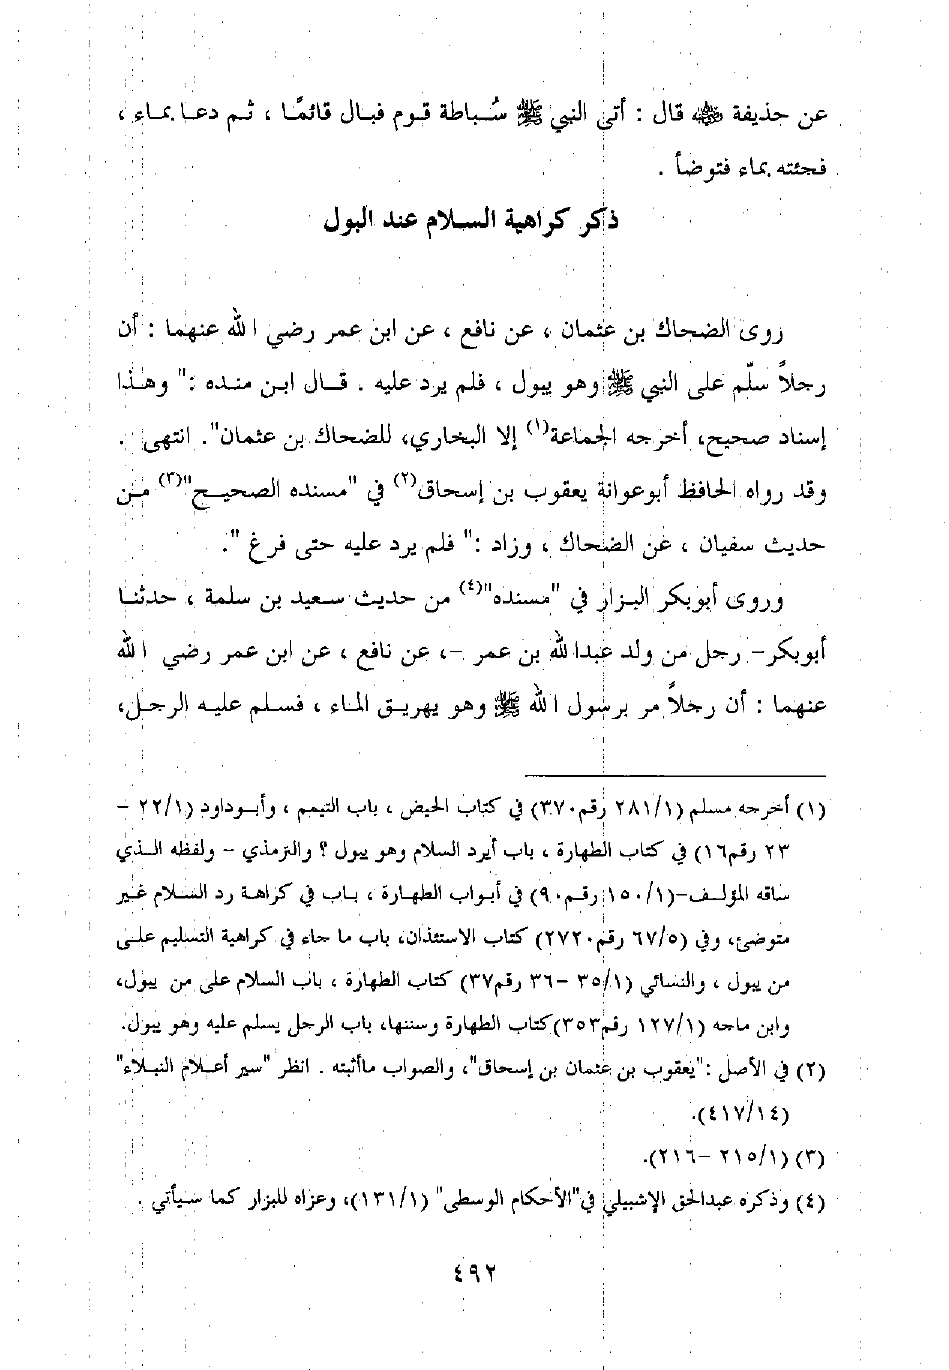 عن حذيفة ﷺ قال : أتى النبي ﷺ سُباطة قوم فبال قائمًا ، ثم دعا بماء ،
فجئته بماء فتوضأ .
ذكر كراهية السلام عند البول
روى الضحاك بن عثمان ، عن نافع ، عن ابن عمر رضي الله عنهما : أن
رجلاً سلّم على النبي ﷺ وهو يبول ، فلم يرد عليه . قال ابن منده :" وهذا
إسناد صحيح، أخرجه الجماعة(١) إلا البخاري، للضحاك بن عثمان". انتهى .
وقد رواه الحافظ أبوعوانة يعقوب بن إسحاق(٢) في "مسنده الصحيح"(٣) من
حديث سفيان ، عن الضحاك ، وزاد :" فلم يرد عليه حتى فرغ ".
وروى أبوبكر البزار في "مسنده"(٤) من حديث سعيد بن سلمة ، حدثنا
أبوبكر- رجل من ولد عبدالله بن عمر -، عن نافع ، عن ابن عمر رضي الله
عنهما : أن رجلاً مر برسول الله ﷺ وهو يهريق الماء ، فسلم عليه الرجل،
(١) أخرجه مسلم (٢٨١/١ رقم٣٧٠) في كتاب الحيض ، باب التيمم ، وأبوداود (٢٢/١ -
٢٣ رقم١٦) في كتاب الطهارة ، باب أيرد السلام وهو يبول ؟ والترمذي - ولفظه الذي
ساقه المؤلف-(١٥٠/١ رقم٩٠) في أبواب الطهارة ، باب في كراهة رد السلام غير
متوضئ، وفي (٦٧/٥ رقم٢٧٢٠) كتاب الاستئذان، باب ما جاء في كراهية التسليم على
من يبول ، والنسائي (٣٥/١ -٣٦ رقم٣٧) كتاب الطهارة ، باب السلام على من يبول،
وابن ماجه (١٢٧/١ رقم٣٥٣)كتاب الطهارة وسننها، باب الرجل يسلم عليه وهو يبول.
(٢) في الأصل :"يعقوب بن عثمان بن إسحاق"، والصواب ماأثبته . انظر "سير أعلام النبلاء"
(٤١٧/١٤).
(٣) (٢١٥/١ -٢١٦).
(٤) وذكره عبدالحق الإشبيلي في"الأحكام الوسطى" (١٣١/١)، وعزاه للبزار كما سيأتي .
٤٩٢